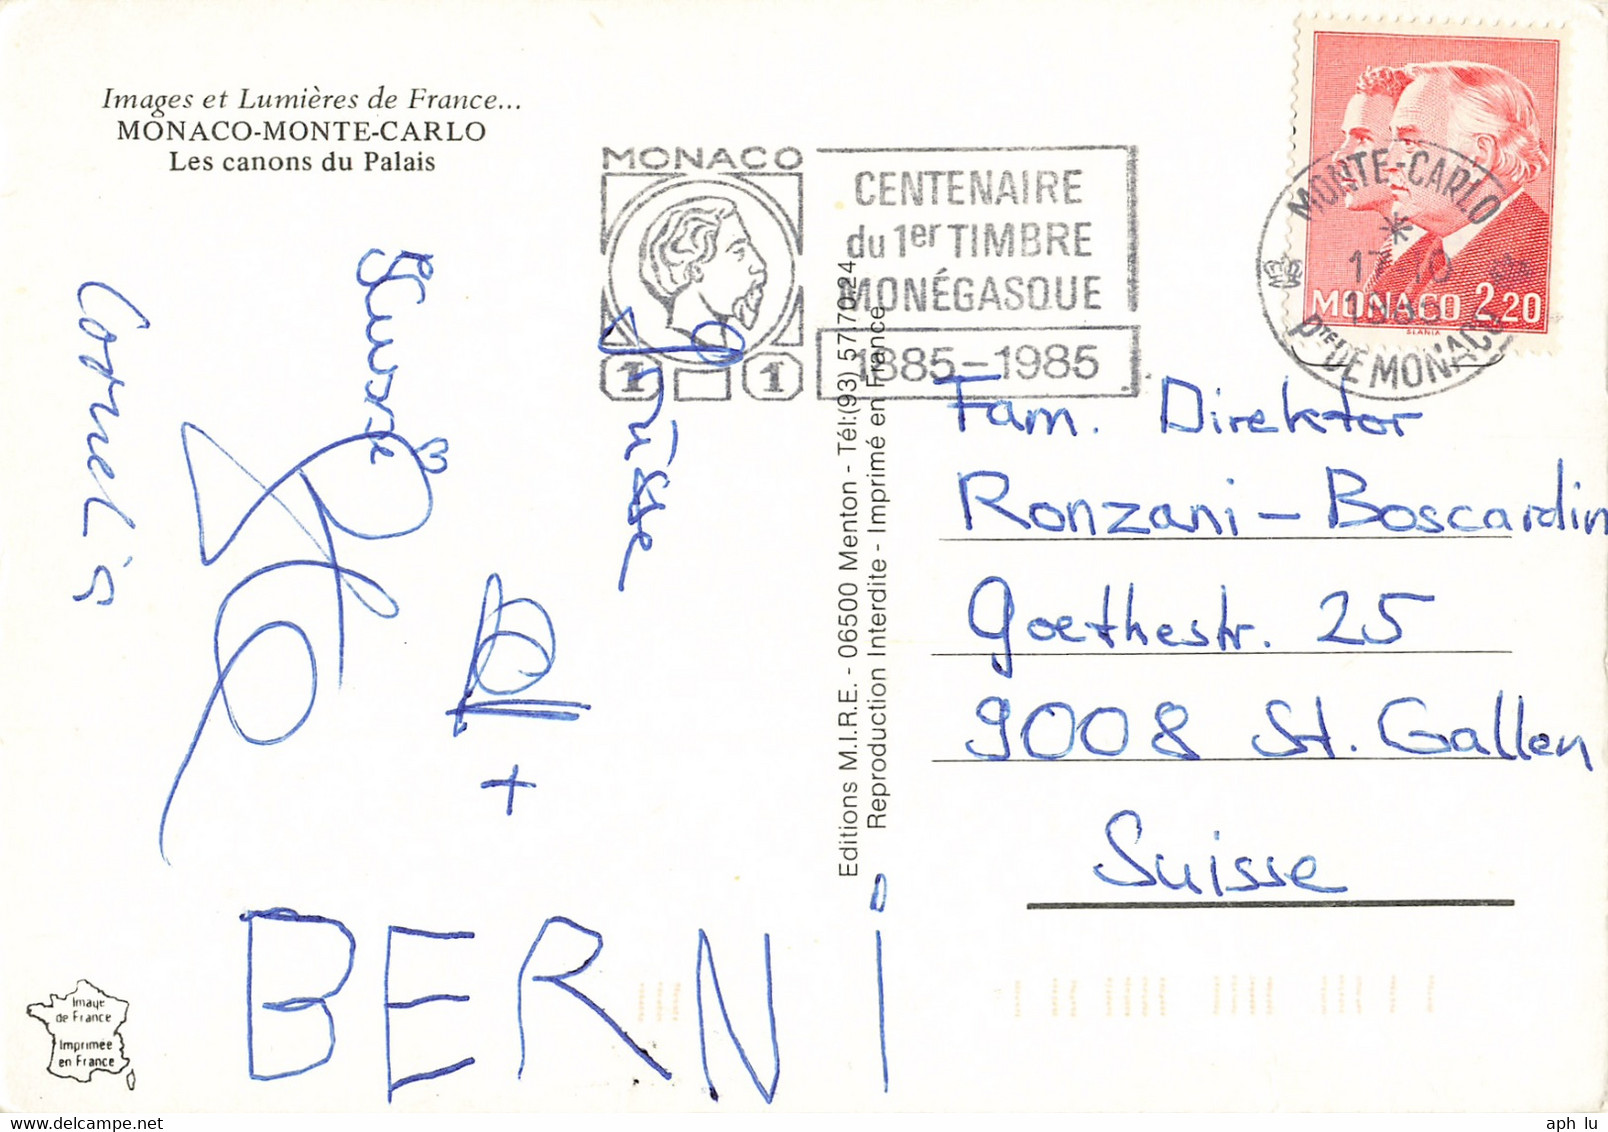 Images et Lumières de France...
MONACO-MONTE-CARLO
Les canons du Palais
MONACO
CENTENAIRE
du 1er TIMBRE
MONÉGASQUE
1885-1985
1 1
MONTE-CARLO
17-10
Pte DE MONACO
MONACO 2,20
SLANIA
Fam. Direktor
Ronzani - Boscardin
Goethestr. 25
9008 St. Gallen
Suisse
Editions M.I.R.E. - 06500 Menton - Tél:(93) 57.70.24
Reproduction Interdite - Imprimé en France
Grüsse
Cornelia
+
BERNI
Image
de France
Imprimée
en France
aph lu